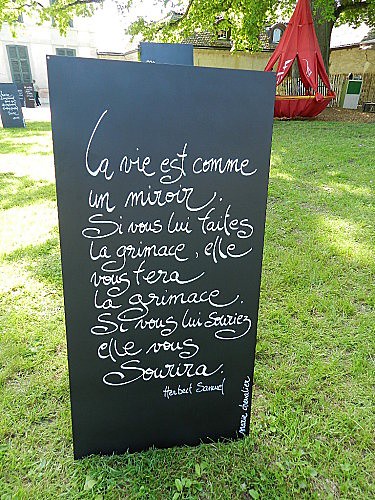 La vie est comme
un miroir.
Si vous lui faites
la grimace, elle
vous fera
la grimace.
Si vous lui souriez
elle vous
Sourira.
Herbert Samuel
marie chevalier